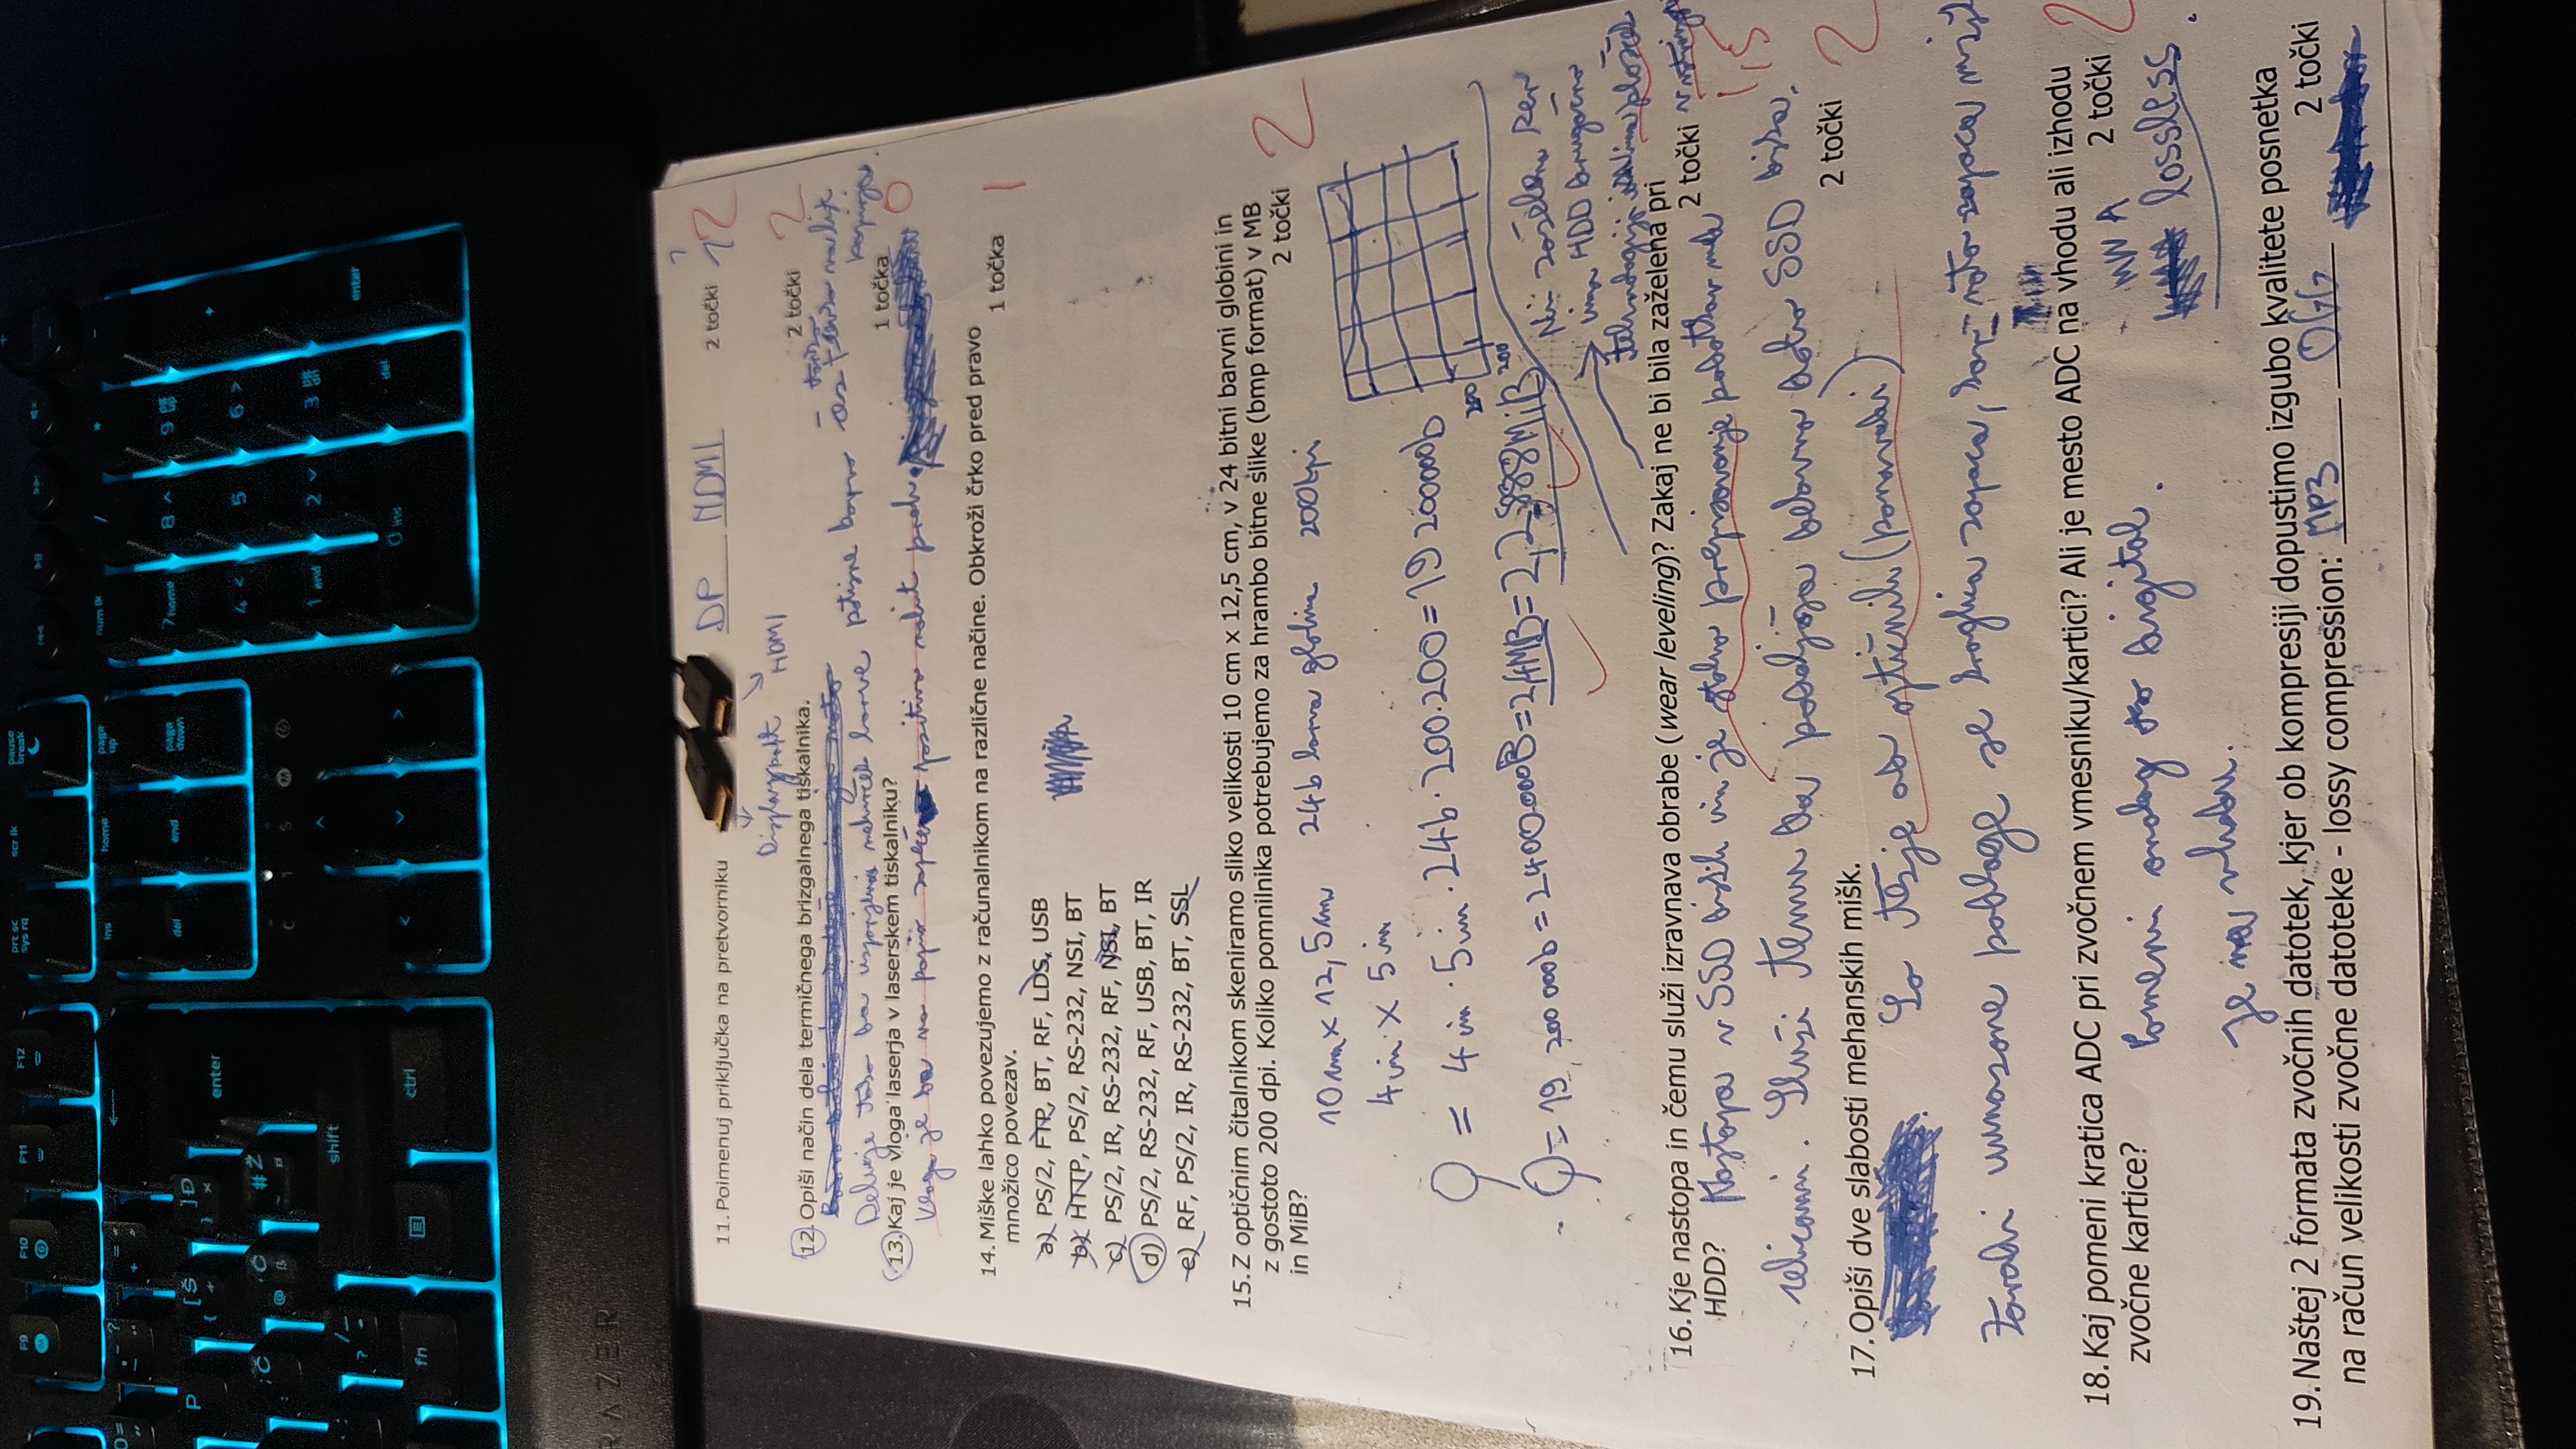 F9 F10 F11 F12 prt sc sys rq scr lk pause break
ins home page up num lk / * -
del end page down 7 home 8 9 pg up +
P [ Š ] Đ enter
4 < 5 6 >
; Č Ć # Ž
1 end 2 3 pg dn
shift enter
fn ctrl < > 0 ins del
RAZER
11. Poimenuj priključka na pretvorniku DP HDMI 2 točki 2
Displayport HDMI
12. Opiši način dela termičnega brizgalnega tiskalnika. 2 točki 2
Deluje tako da mehurček barve potisne barvo čez na list
papirja.
13. Kaj je vloga laserja v laserskem tiskalniku? 1 točka 0
Vloga je da na papir pozitivno nabit prah.
14. Miške lahko povezujemo z računalnikom na različne načine. Obkroži črko pred pravo
množico povezav. 1 točka 1
a) PS/2, FTP, BT, RF, LDS, USB
b) HTTP, PS/2, RS-232, NSI, BT
c) PS/2, IR, RS-232, RF, NSI, BT
d) PS/2, RS-232, RF, USB, BT, IR
e) RF, PS/2, IR, RS-232, BT, SSL
15. Z optičnim čitalnikom skeniramo sliko velikosti 10 cm x 12,5 cm, v 24 bitni barvni globini in
z gostoto 200 dpi. Koliko pomnilnika potrebujemo za hrambo bitne slike (bmp format) v MB
in MiB? 2 točki 2
10cm x 12,5cm 24b barva globina 200dpi
4in x 5in
Q = 4in · 5in · 24b · 200 · 200 = 19 200000b
200
200
Q = 19 200 000b = 2400000B = 2,4MB = 2,2888MiB
Ni zaželena ker
ima HDD drugačno
tehnologijo
16. Kje nastopa in čemu služi izravnava obrabe (wear leveling)? Zakaj ne bi bila zaželena pri
HDD? 2 točki 1,5
Nastopa v SSD diskih in je stalno prepisovanje podatkov med
celicami. Služi temu da podaljša delavno dobo SSD diska.
17. Opiši dve slabosti mehanskih mišk. 2 točki 2
So težje od optičnih (ponavadi)
Zaradi umazane podlage se kroglica zapaca,
18. Kaj pomeni kratica ADC pri zvočnem vmesniku/kartici? Ali je mesto ADC na vhodu ali izhodu
zvočne kartice? 2 točki 2
Pomeni analog to digital.
lossless
Je na vhodu.
19. Naštej 2 formata zvočnih datotek, kjer ob kompresiji dopustimo izgubo kvalitete posnetka
na račun velikosti zvočne datoteke - lossy compression: MP3 OGG 2 točki